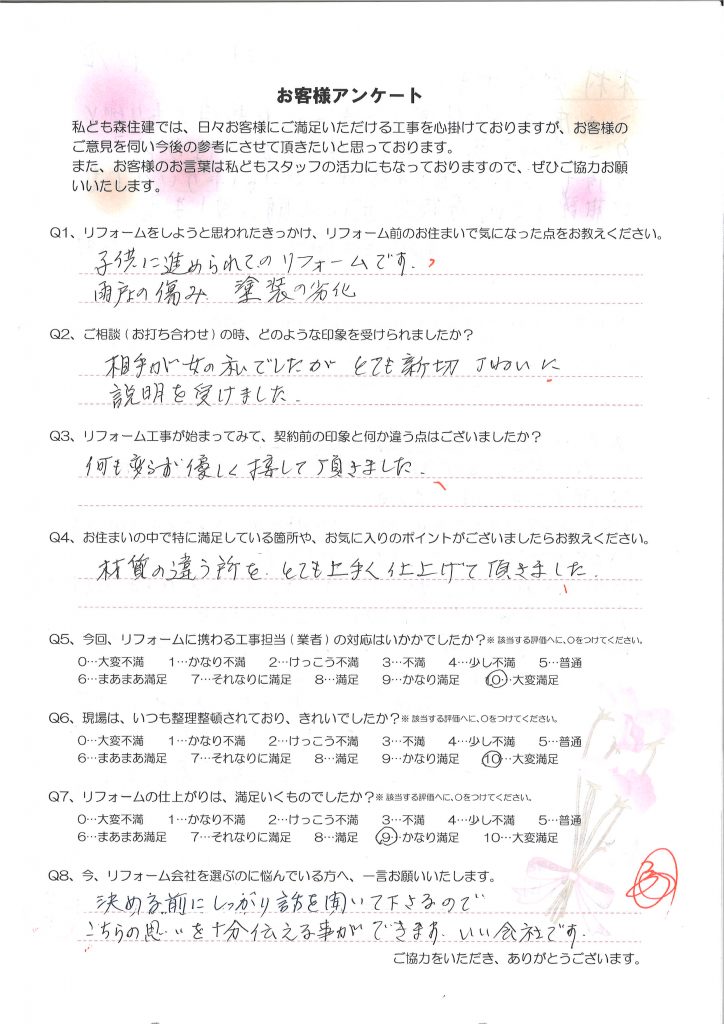 お客様アンケート
私ども森住建では、日々お客様にご満足いただける工事を心掛けておりますが、お客様の
ご意見を伺い今後の参考にさせて頂きたいと思っております。
また、お客様のお言葉は私どもスタッフの活力にもなっておりますので、ぜひご協力お願
いいたします。
Q1、リフォームをしようと思われたきっかけ、リフォーム前のお住まいで気になった点をお教えください。
子供に進められてのリフォームです.
雨戸の傷み 塗装の劣化
Q2、ご相談(お打ち合わせ)の時、どのような印象を受けられましたか?
相手が女の私でしたが とても新切 丁ねいに
説明を受けました.
Q3、リフォーム工事が始まってみて、契約前の印象と何か違う点はございましたか?
何も変らず優しく接して頂きました.
Q4、お住まいの中で特に満足している箇所や、お気に入りのポイントがございましたらお教えください。
材質の違う所を とても上手く仕上げて頂きました.
Q5、今回、リフォームに携わる工事担当(業者)の対応はいかかでしたか?※該当する評価へに、○をつけてください。
0…大変不満 1…かなり不満 2…けっこう不満 3…不満 4…少し不満 5…普通
6…まあまあ満足 7…それなりに満足 8…満足 9…かなり満足 10…大変満足
Q6、現場は、いつも整理整頓されており、きれいでしたか?※該当する評価へに、○をつけてください。
0…大変不満 1…かなり不満 2…けっこう不満 3…不満 4…少し不満 5…普通
6…まあまあ満足 7…それなりに満足 8…満足 9…かなり満足 10…大変満足
Q7、リフォームの仕上がりは、満足いくものでしたか?※該当する評価へに、○をつけてください。
0…大変不満 1…かなり不満 2…けっこう不満 3…不満 4…少し不満 5…普通
6…まあまあ満足 7…それなりに満足 8…満足 9…かなり満足 10…大変満足
Q8、今、リフォーム会社を選ぶのに悩んでいる方へ、一言お願いいたします。
決める前にしっかり話を聞いて下さるので
こちらの思いを十分伝える事ができます. いい会社です.
ご協力をいただき、ありがとうございます。